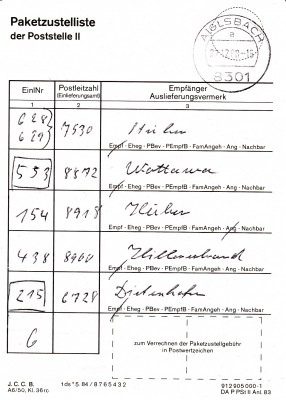 Paketzustelliste
der Poststelle II
AIGLSBACH
a
8301
EinlNr
Postleitzahl
(Einlieferungsamt)
Empfänger
Auslieferungsvermerk
1 2 3
628
629 7530 Huber
Empf · Eheg · PBev · PEmpfB · FamAngeh · Ang · Nachbar
553 8872
Empf · Eheg · PBev · PEmpfB · FamAngeh · Ang · Nachbar
154 8918 Huber
Empf · Eheg · PBev · PEmpfB · FamAngeh · Ang · Nachbar
438 8960 Hillenbrand
Empf · Eheg · PBev · PEmpfB · FamAngeh · Ang · Nachbar
215 6728
Empf · Eheg · PBev · PEmpfB · FamAngeh · Ang · Nachbar
6
zum Verrechnen der Paketzustellgebühr
in Postwertzeichen
J. C. C. B.
A6/50, Kl. 36 rc
1 ds* 5 84 / 8 7 6 5 4 3 2
912 905 000-1
DA P PSt II Anl. 83